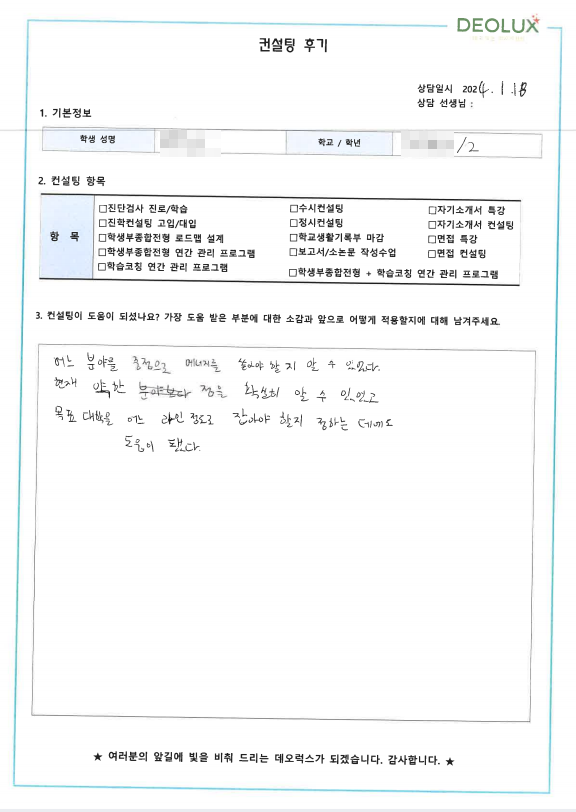 DEOLUX
컨설팅 후기
상담일시 2024.1.18
상담 선생님 :
1. 기본정보
학생 성명 학교 / 학년 /2
2. 컨설팅 항목
항 목
□진단검사 진로/학습 □수시컨설팅 □자기소개서 특강
□진학컨설팅 고입/대입 □정시컨설팅 □자기소개서 컨설팅
□학생부종합전형 로드맵 설계 □학교생활기록부 마감 □면접 특강
□학생부종합전형 연간 관리 프로그램 □보고서/소논문 작성수업 □면접 컨설팅
□학습코칭 연간 관리 프로그램 □학생부종합전형 + 학습코칭 연간 관리 프로그램
3. 컨설팅이 도움이 되셨나요? 가장 도움 받은 부분에 대한 소감과 앞으로 어떻게 적용할지에 대해 남겨주세요.
어느 분야를 중점으로 에너지를 쏟아야 할 지 알 수 있었다.
현재 약한 점을 확실히 알 수 있었고
목표 대학을 어느 라인 정도로 잡아야 할지 정하는 데에도
도움이 됐다.
★ 여러분의 앞길에 빛을 비춰 드리는 데오럭스가 되겠습니다. 감사합니다. ★